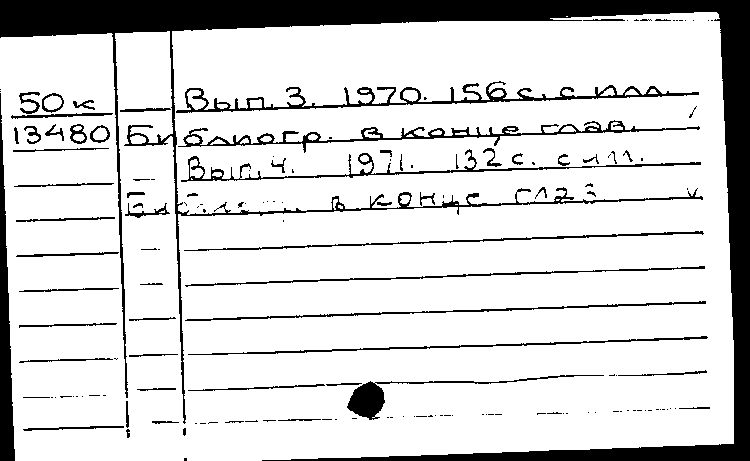 50к Вып. 3. 1970. 156 с. с илл.
13480 Библиогр. в конце глав.
Вып. 4. 1971. 132 с. с илл.
Библиогр. в конце глав